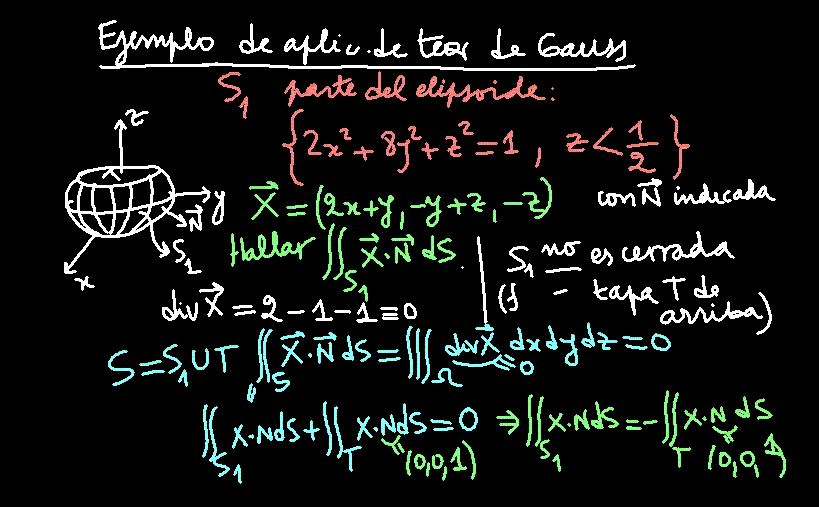 Ejemplo de aplic. de teor de Gauss
S₁ parte del elipsoide:
{2x²+8y²+z²=1, z<1/2}
z
y
N⃗
S₁
x
X⃗=(2x+y,-y+z,-z)
con N⃗ indicada
Hallar ∬_S₁ X⃗·N⃗ dS.
S₁ no es cerrada
tapa T de arriba)
div X⃗=2-1-1≡0
S=S₁∪T ∬_S X⃗·N⃗ dS=∭_Ω div X⃗ dxdydz=0
=0
∬_S₁ X·NdS+∬_T X·NdS=0 ⇒∬_S₁ X·NdS=-∬_T X·N dS
(0,0,1) (0,0,1)